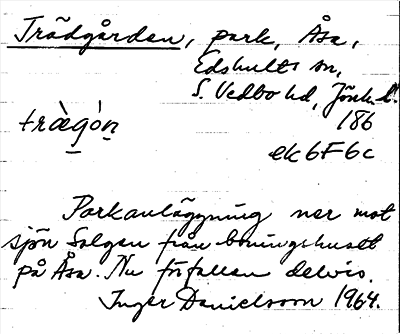 Trädgården, park, Åsa,
Edshults sn,
S. Vedbo hd, Jönk. l.
186
trægón
ek 6F6c
Parkanläggning ner mot
sjön Solgen från boningshuset
på Åsa. Nu förfallen delvis.
Inger Danielsson 1964.